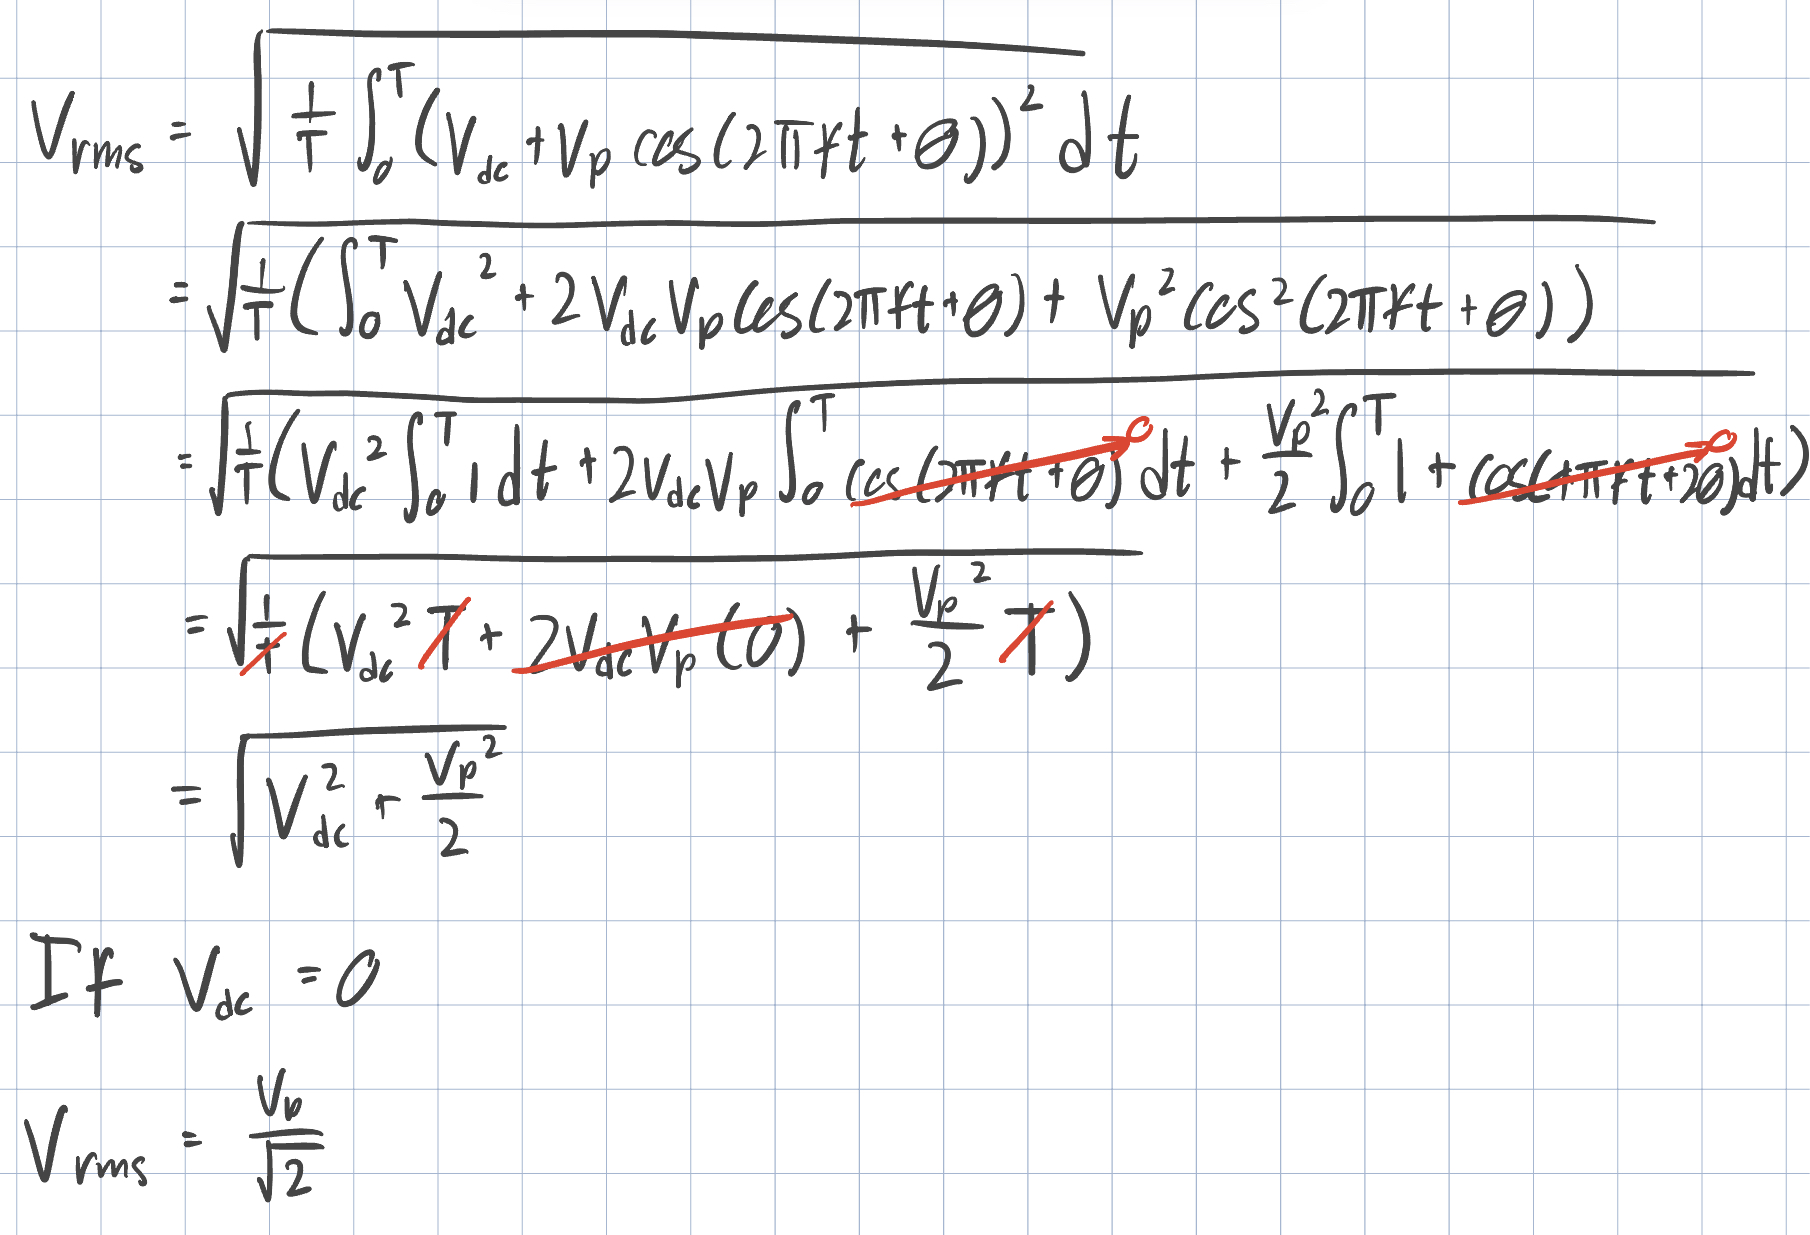 V_rms = √(1/T ∫_0^T (V_dc + V_p cos(2πft + θ))² dt
= √(1/T (∫_0^T V_dc² + 2V_dc V_p cos(2πft + θ) + V_p² cos²(2πft + θ))
= √(1/T (V_dc² ∫_0^T 1 dt + 2V_dc V_p ∫_0^T cos(2πft + θ) 0 dt + V_p²/2 ∫_0^T 1 + cos(4πft + 2θ) 0 dt)
= √(1/T (V_dc² T + 2V_dc V_p (0) + V_p²/2 T)
= √(V_dc² + V_p²/2)
If V_dc = 0
V_rms = V_p/√2